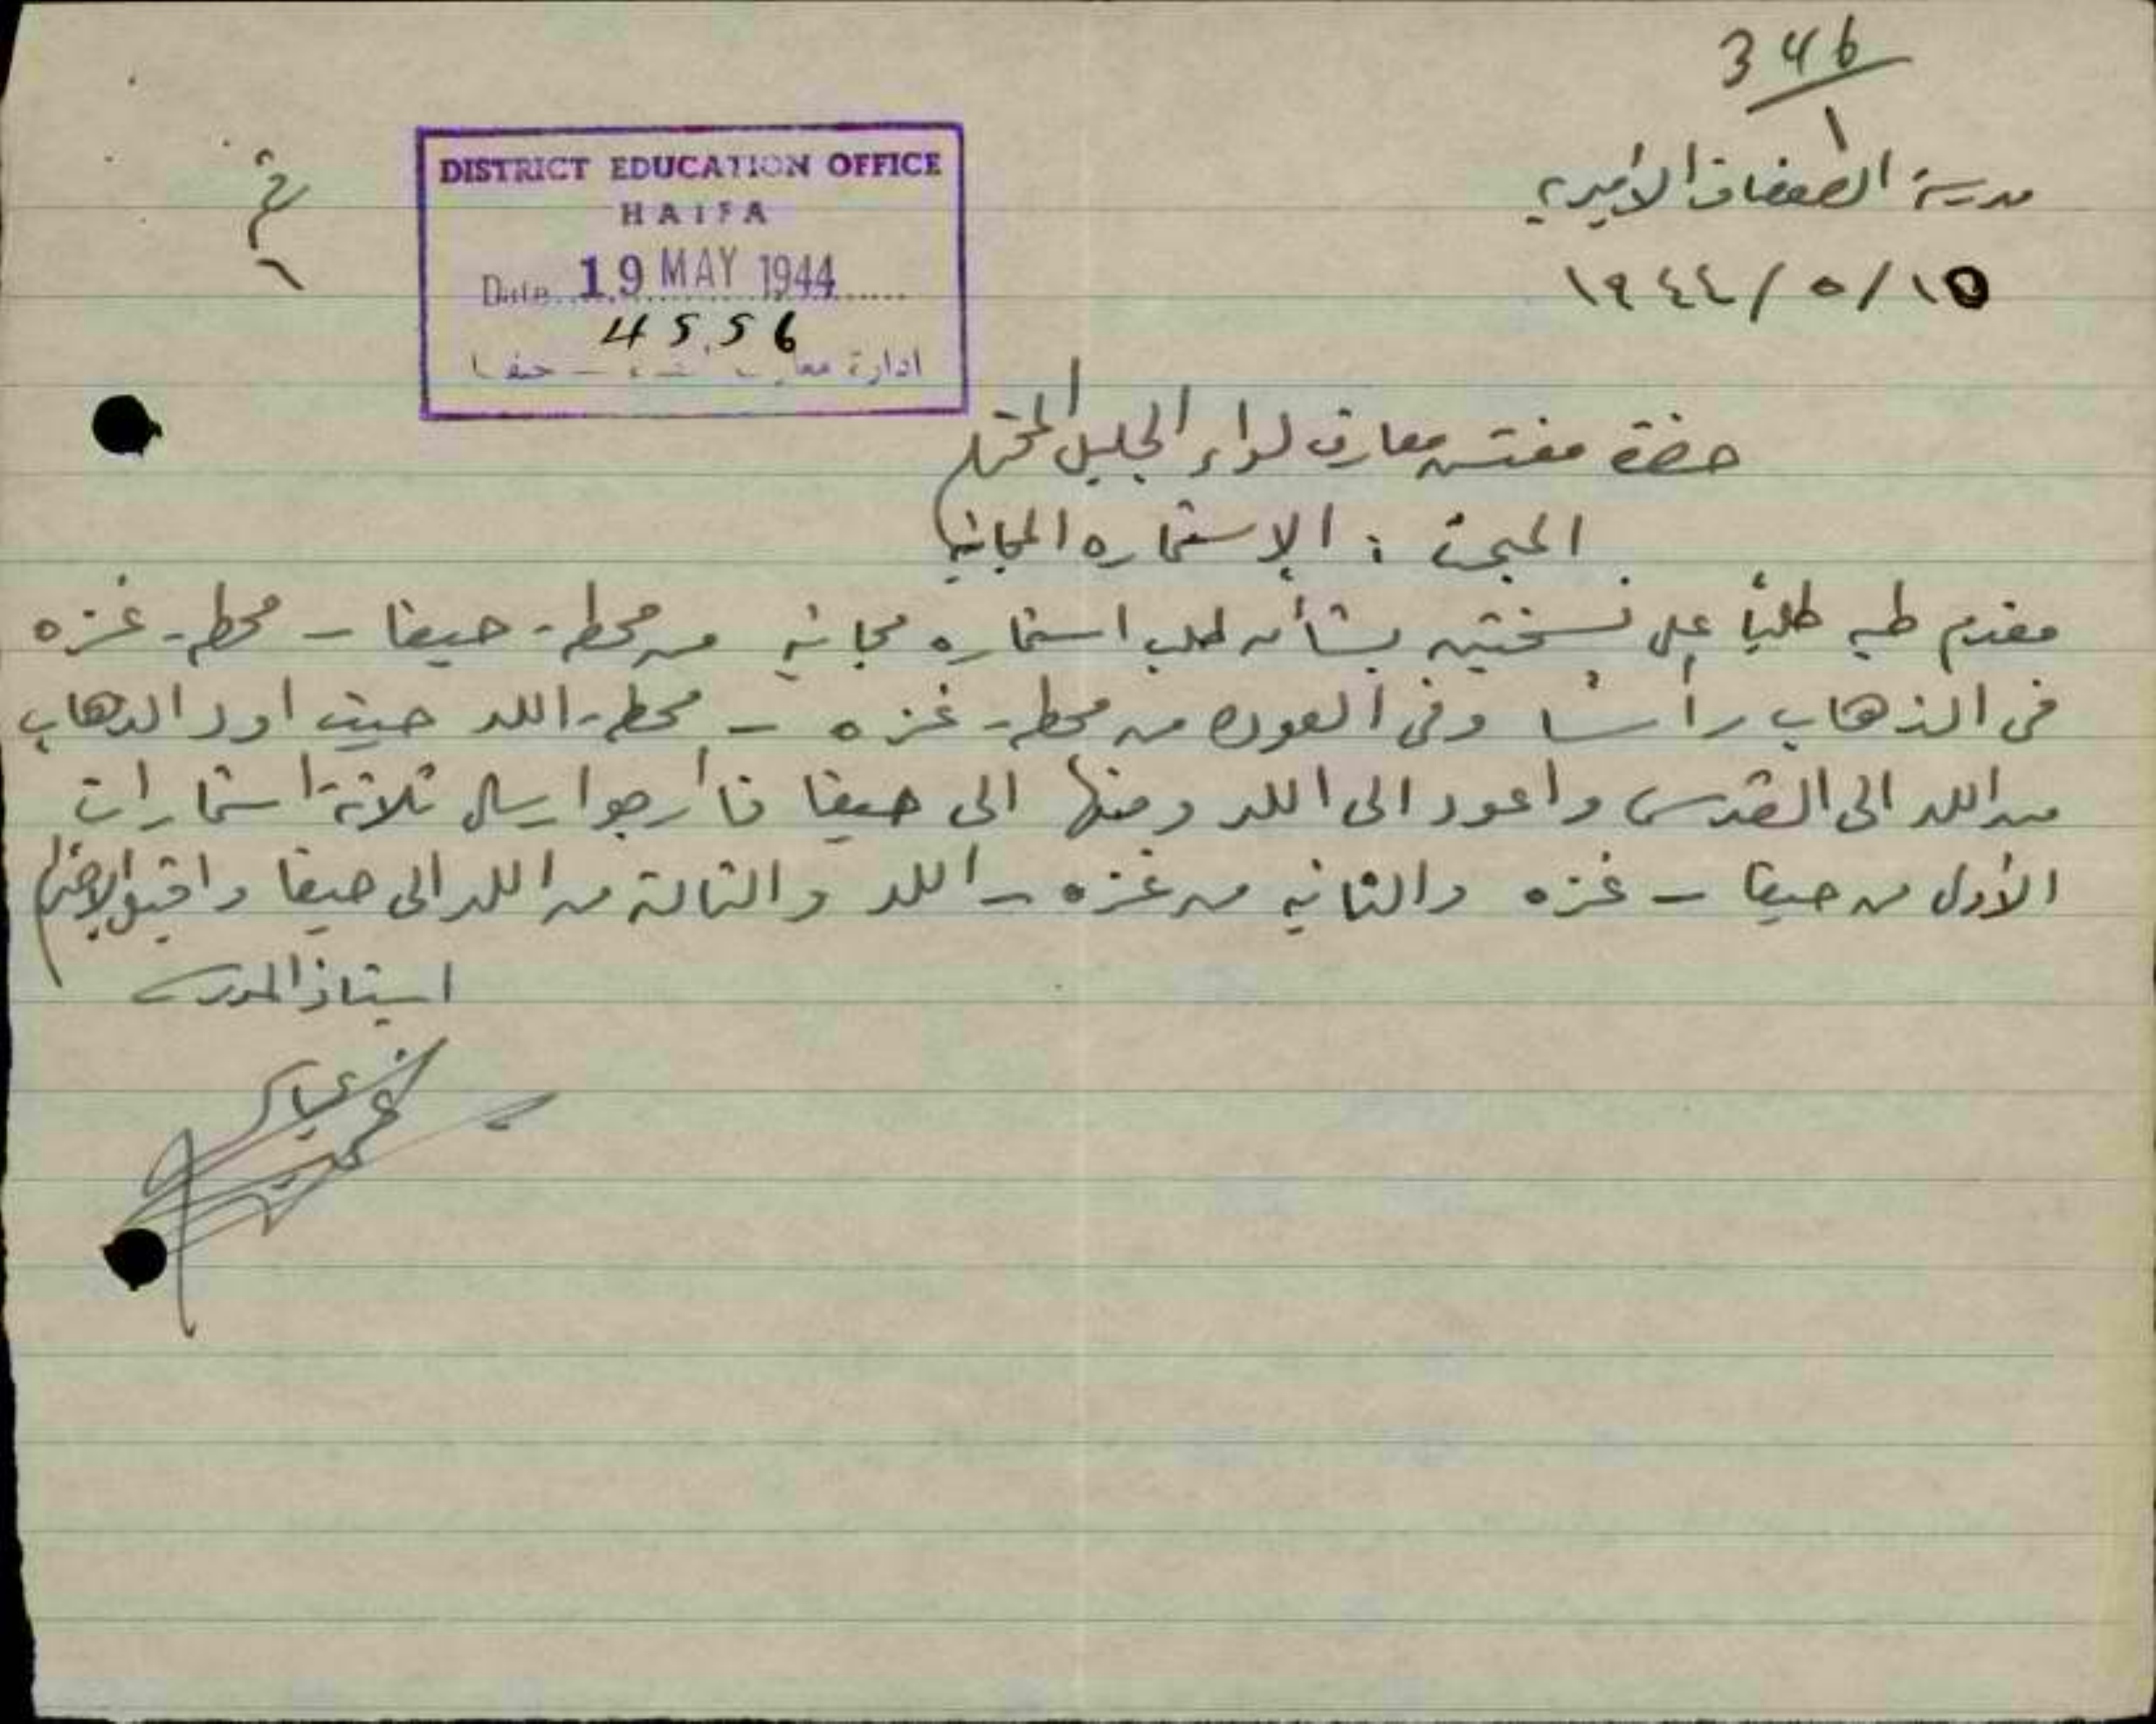 346
١
مدرسة الصفصاف الأميرية
١٩٤٤/٥/١٥
DISTRICT EDUCATION OFFICE
HAIFA
Date 19 MAY 1944
4556
ادارة معارف حيفا
حضرة مفتش معارف لواء الجليل المحترم
المبحث : الإستماره المجانيه
مقدم طيه طلباً على نسختين بشأن طلب استماره مجانيه من محطة حيفا - محطة غزه
في الذهاب رأساً وفي العوده من محطة غزه - محطة اللد حيث اود الذهاب
من اللد الى القدس واعود الى اللد ومنها الى حيفا فأرجو ارسال ثلاثة استمارات
الأولى من حيفا - غزه والثانيه من غزه - اللد والثالثة من اللد الى حيفا واقبلوا الاحترام
استاذ المدرسة